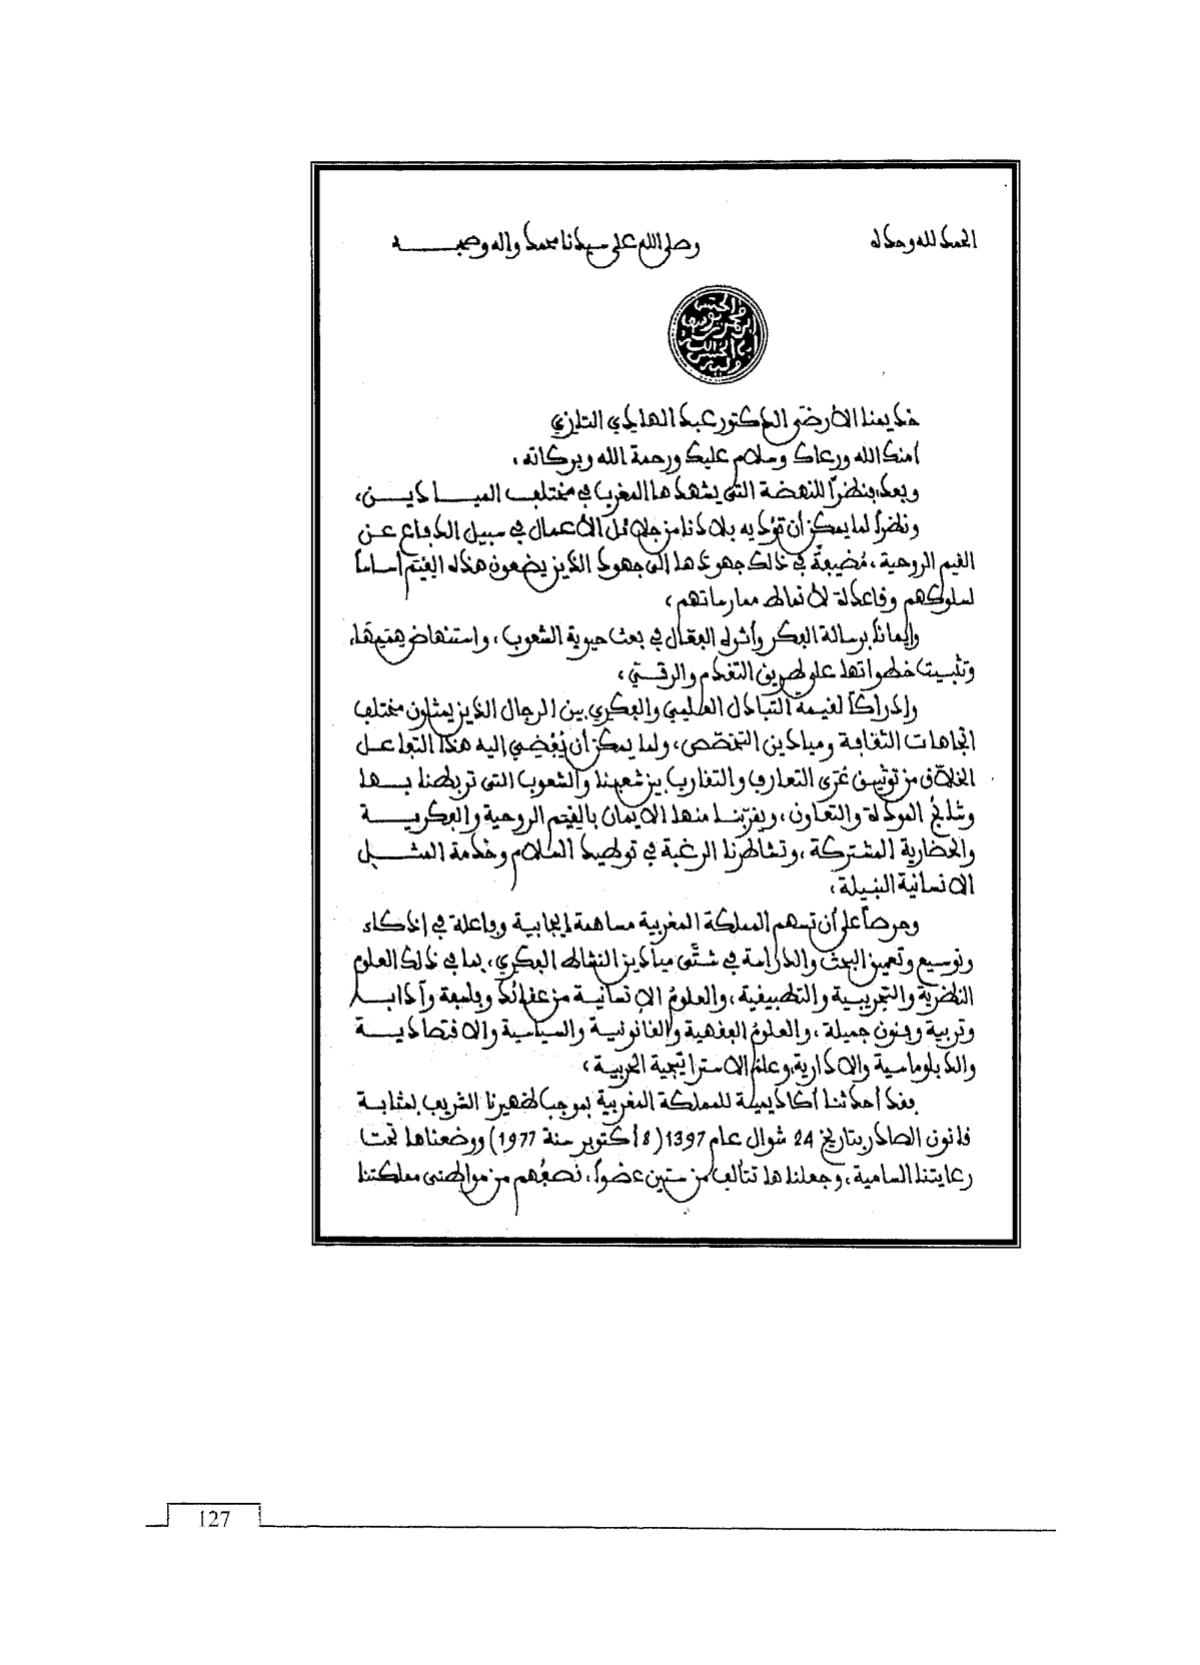 الحمد لله وحده
وصلى الله على سيدنا محمد وآله وصحبه
الحسن
بن محمد بن يوسف
بن الحسن الله
وليه
خديمنا الأرضى الدكتور عبد الهادي التازي
أمنك الله ورعاك وسلام عليك ورحمة الله وبركاته،
وبعد، فنظراً للنهضة التي يشهدها المغرب في مختلف الميادين،
ونظراً لما يمكن أن تؤديه بلادنا من جلائل الأعمال في سبيل الدفاع عن
القيم الروحية، مُضيفةً في ذلك جهودها إلى جهود الذين يضعون هذه القيم أساساً
لسلوكهم وقاعدة لأنماط ممارساتهم،
وإيماناً برسالة الفكر وأثره الفعال في بعث حيوية الشعوب، واستنهاض هِمَمِهَا،
وتثبيت خطواتها على طريق التقدم والرقي،
وإدراكاً لقيمة التبادل العلمي والفكري بين الرجال الذين يمثلون مختلف
اتجاهات الثقافة وميادين التخصّص، ولما يمكن أن يُفْضِيَ إليه هذا التفاعل
الخلاّق من توثيق عُرَى التعارف والتقارب بين شعبنا والشعوب التي تربطنا بها
وشائجُ المودة والتعاون، ويقرّبنا منها الإيمان بالقِيَم الروحية والفكرية
والحضارية المشتركة، وتشاطرنا الرغبة في توطيد السلام وخدمة المثل
الإنسانية النبيلة،
وحرصاً على أن تسهم المملكة المغربية مساهمة إيجابية وفاعلة في إذكاء
وتوسيع وتعميق البحث والدراسة في شتَّى ميادين النشاط الفكري، بما في ذلك العلوم
النظريّة والتجريبية والتطبيقية، والعلوم الإنسانية من عقائد وفلسفة وآداب
وتربية وفنون جميلة، والعلوم الفقهية والقانونية والسياسية والاقتصادية
والدبلوماسية والإدارية، وعلم الاستراتيجية الحربية،
فقد أحدثنا أكاديمية للمملكة المغربية بموجب ظهيرنا الشريف بمثابة
قانون الصادر بتاريخ 24 شوال عام 1397 (8 أكتوبر سنة 1977) ووضعناها تحت
رعايتنا السامية، وجعلناها تتألف من ستين عضواً، نصفُهم من مواطني مملكتنا
127